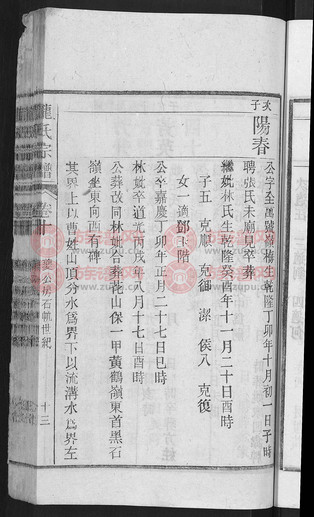 次子
陽春
公字至萬號 梅生乾隆丁卯年十月初一日子時
聘張氏未廟見卒葬
繼妣林氏生乾隆癸酉年十一月二十日酉時
子五 克 克御 潔 俟八 克復
女一適鄧 階
公卒嘉慶丁卯年正月二十七日巳時
林妣卒道光丙戌年八月十七日酉時
公葬改同林妣合葬花山保一甲黃鶴嶺東首黑石
嶺坐東向酉有碑
其界上以曹姓山頂分水爲界下以流溝水爲界左
龍氏宗譜
卷十
公房石軌世紀
十三